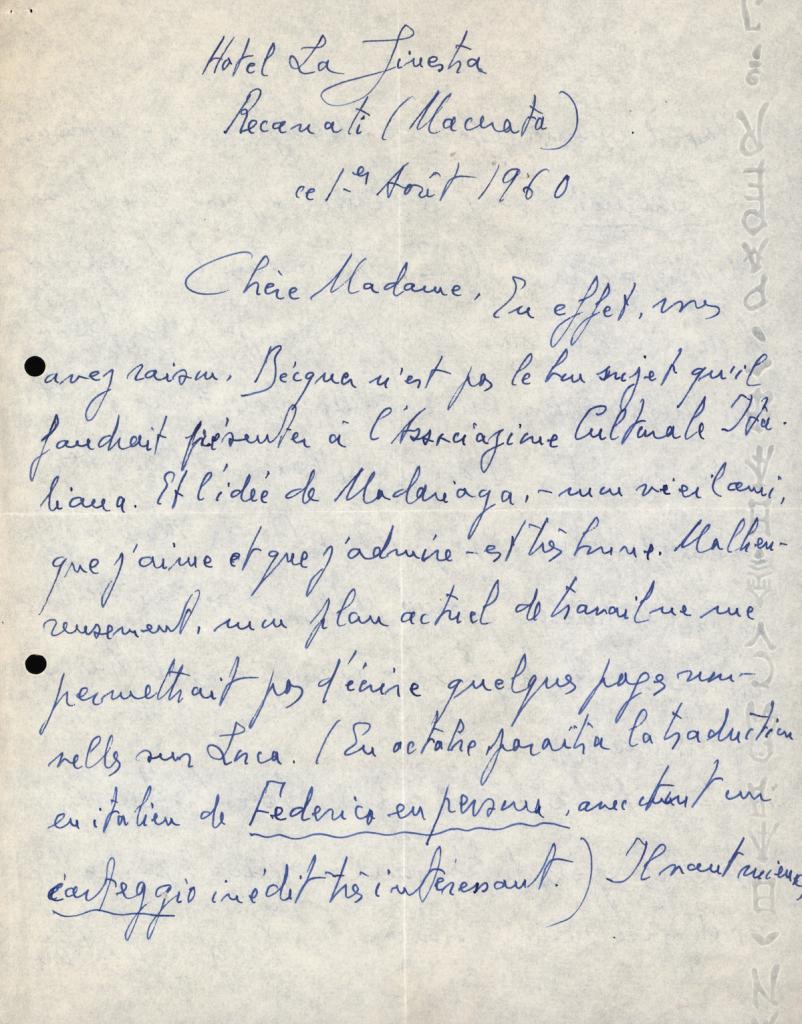 Hotel La Ginestra
Recanati (Macerata)
ce 1er Août 1960
Chère Madame, En effet, vous
avez raison. Bécquer n'est pas le bon sujet qu'il
faudrait présenter à l'Associazione Culturale Ita-
liana. Et l'idée de Madariaga, - mon vieil ami,
que j'aime et que j'admire - est très bonne. Malheu-
reusement, mon plan actuel de travail ne me
permettrait pas d'écrire quelques pages nou-
velles sur Lorca. (En octobre paraîtra la traduction
en italien de Federico en persona, avec tout un
carteggio inédit très intéressant.) Il vaut mieux,